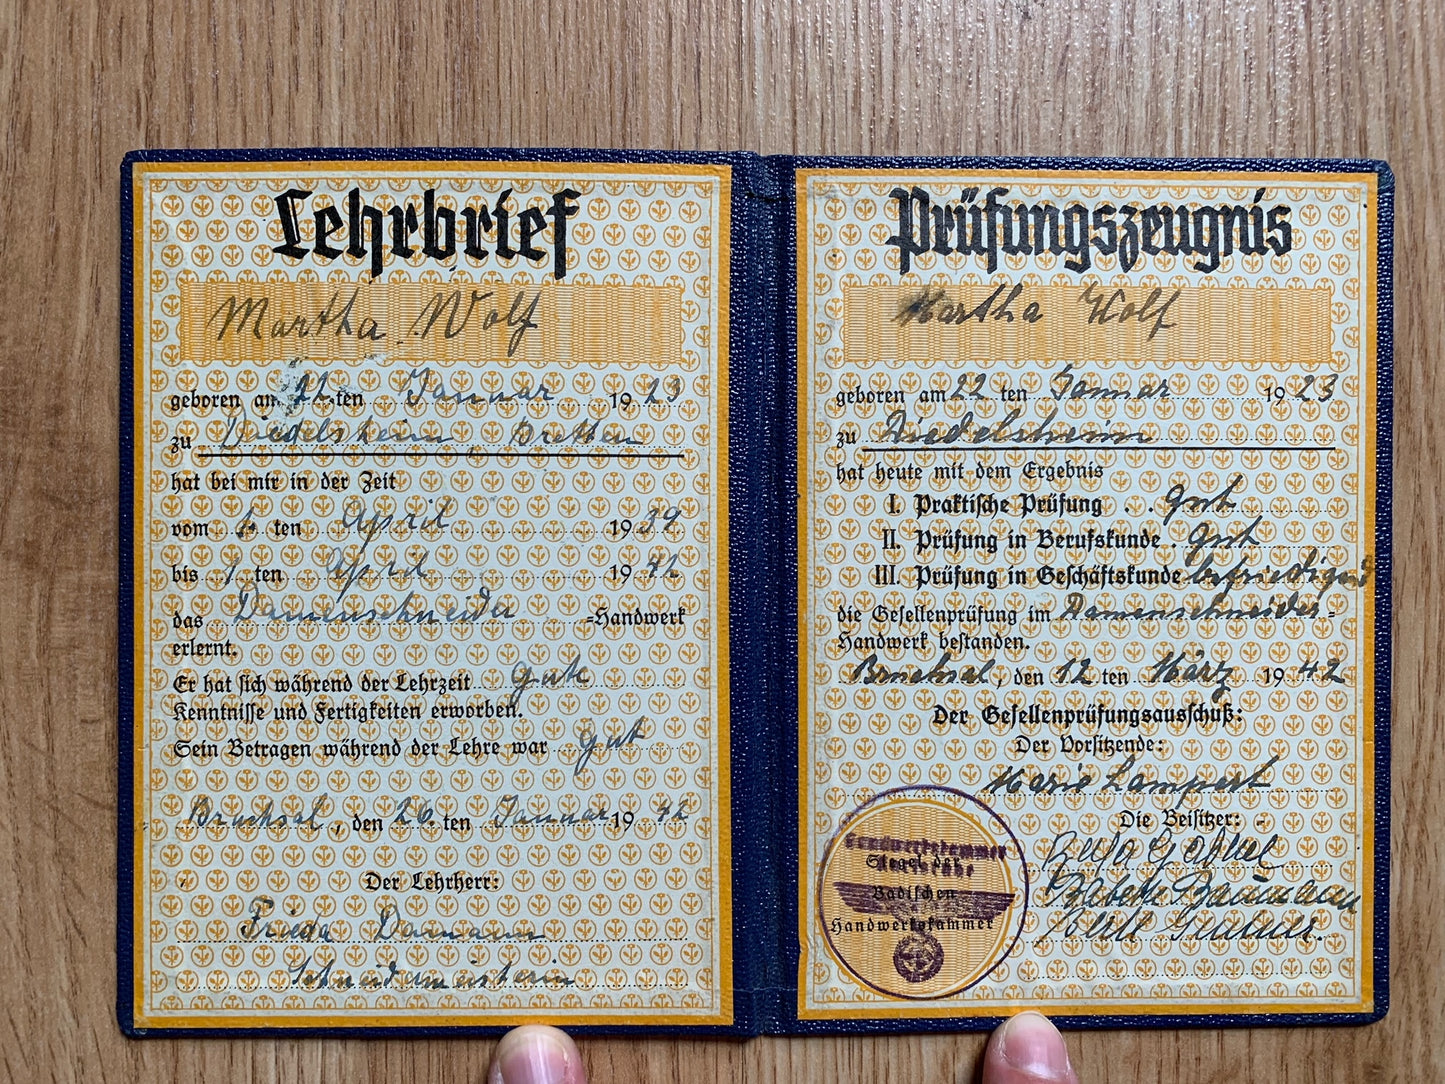 Lehrbrief
Martha Wolf
geboren am 22. ten Januar 1923
zu Diedelsheim, Bretten
hat bei mir in der Zeit
vom 1. ten April 1939
bis 1 ten April 1942
das Damenschneider =Handwerk
erlernt.
Er hat sich während der Lehrzeit gute
Kenntnisse und Fertigkeiten erworben.
Sein Betragen während der Lehre war gut
Bruchsal, den 26. ten Januar 1942
Der Lehrherr:
Frieda
Schneidermeisterin
Prüfungszeugnis
Martha Wolf
geboren am 22 ten Januar 1923
zu Diedelsheim
hat heute mit dem Ergebnis
I. Praktische Prüfung . . gut
II. Prüfung in Berufskunde . gut
III. Prüfung in Geschäftskunde befriedigend
die Gesellenprüfung im Damenschneider-
Handwerk bestanden.
Bruchsal, den 12 ten März 1942
Der Gesellenprüfungsausschuß:
Der Vorsitzende:
Marie Lampert
Die Beisitzer:
Babette Baumann
Handwerkskammer
Karlsruhe
Siegel der
Badischen
Handwerkskammer